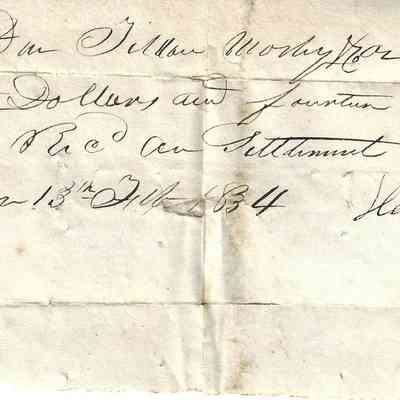 Due Tillew Mosby
Dollars and fourteen
Recd on Settlement
13th Feb 1834